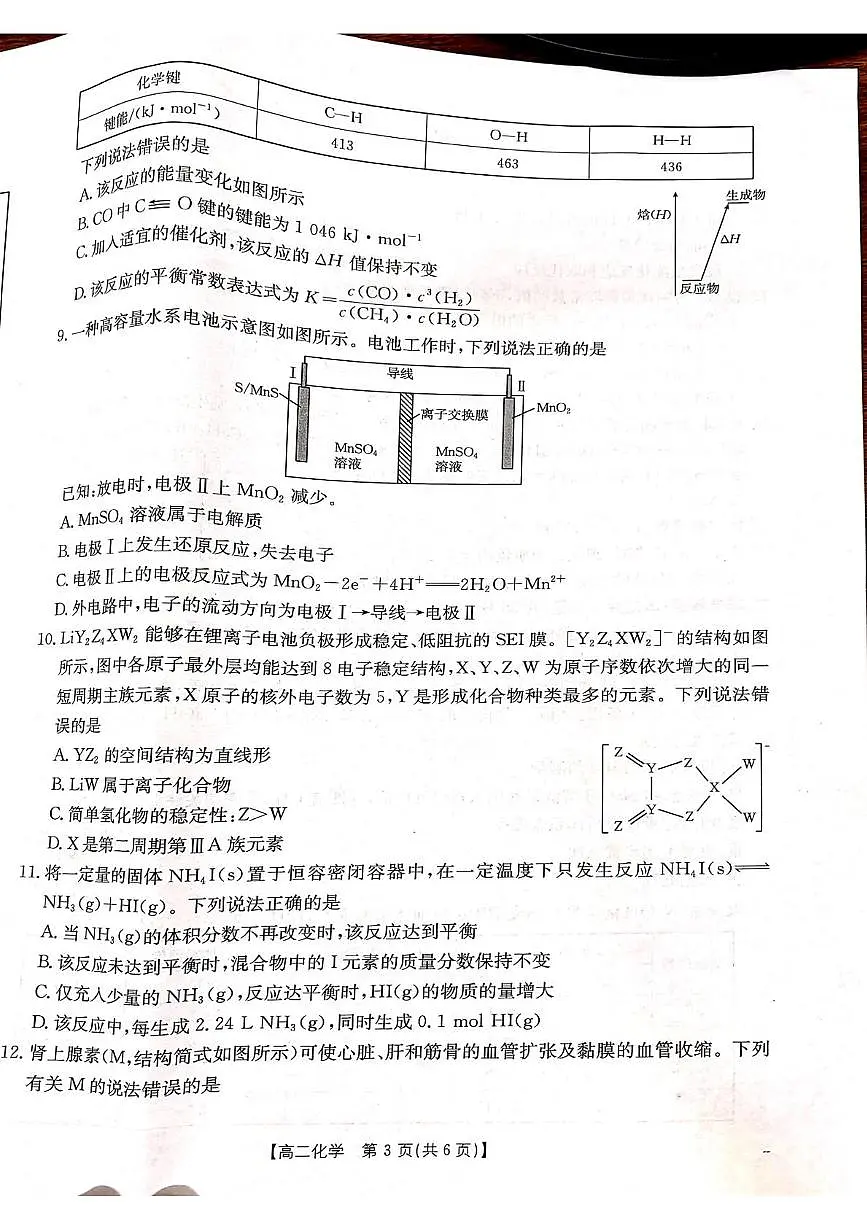 化学键 C—H O—H H—H
键能/(kJ·mol⁻¹) 413 463 436
下列说法错误的是
A. 该反应的能量变化如图所示
B. CO 中 C≡O 键的键能为 1 046 kJ·mol⁻¹
C. 加入适宜的催化剂,该反应的 ΔH 值保持不变
D. 该反应的平衡常数表达式为 K=c(CO)·c³(H₂)/c(CH₄)·c(H₂O)
焓(H)
生成物
ΔH
反应物
9. 一种高容量水系电池示意图如图所示。电池工作时,下列说法正确的是
Ⅰ 导线 Ⅱ
S/MnS
MnO₂
离子交换膜
MnSO₄ MnSO₄
溶液 溶液
已知:放电时,电极Ⅱ上 MnO₂ 减少。
A. MnSO₄ 溶液属于电解质
B. 电极Ⅰ上发生还原反应,失去电子
C. 电极Ⅱ上的电极反应式为 MnO₂-2e⁻+4H⁺══2H₂O+Mn²⁺
D. 外电路中,电子的流动方向为电极Ⅰ→导线→电极Ⅱ
10. LiY₂Z₄XW₂ 能够在锂离子电池负极形成稳定、低阻抗的 SEI 膜。[Y₂Z₄XW₂]⁻的结构如图
所示,图中各原子最外层均能达到 8 电子稳定结构,X、Y、Z、W 为原子序数依次增大的同一
短周期主族元素,X 原子的核外电子数为 5,Y 是形成化合物种类最多的元素。下列说法错
误的是
A. YZ₂ 的空间结构为直线形
B. LiW 属于离子化合物
C. 简单氢化物的稳定性:Z>W
D. X 是第二周期第ⅢA 族元素
Z Y Z X W
Z Y Z W
11. 将一定量的固体 NH₄I(s)置于恒容密闭容器中,在一定温度下只发生反应 NH₄I(s)⇌
NH₃(g)+HI(g)。下列说法正确的是
A. 当 NH₃(g)的体积分数不再改变时,该反应达到平衡
B. 该反应未达到平衡时,混合物中的 I 元素的质量分数保持不变
C. 仅充入少量的 NH₃(g),反应达平衡时,HI(g)的物质的量增大
D. 该反应中,每生成 2.24 L NH₃(g),同时生成 0.1 mol HI(g)
12. 肾上腺素(M,结构简式如图所示)可使心脏、肝和筋骨的血管扩张及黏膜的血管收缩。下列
有关 M 的说法错误的是
【高二化学 第 3 页(共 6 页)】